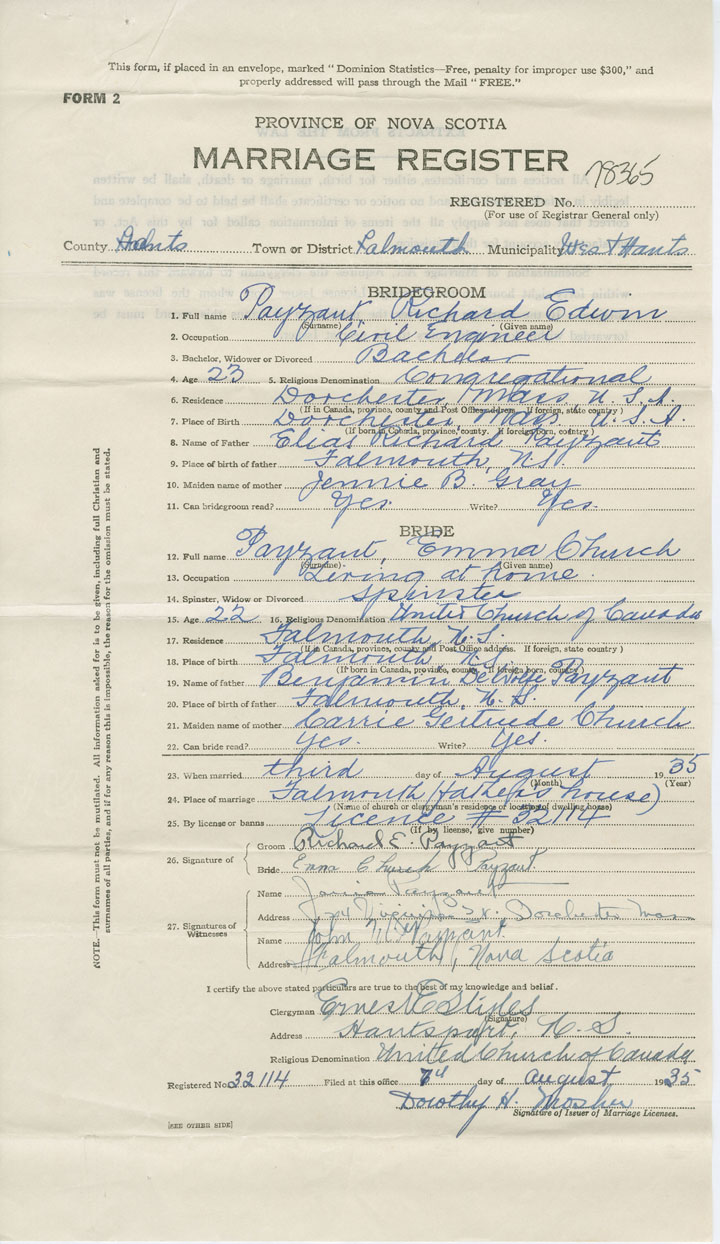 This form, if placed in an envelope, marked "Dominion Statistics—Free, penalty for improper use $300," and
properly addressed will pass through the Mail "FREE."
FORM 2
PROVINCE OF NOVA SCOTIA
MARRIAGE REGISTER
78365
REGISTERED No.
(For use of Registrar General only)
County Hants Town or District Falmouth Municipality West Hants
BRIDEGROOM
1. Full name Payzant, Richard Edwin
(Surname) (Given name)
2. Occupation Civil Engineer
3. Bachelor, Widower or Divorced Bachelor
4. Age 23 5. Religious Denomination Congregational
6. Residence Dorchester, Mass, U.S.A.
(If in Canada, province, county and Post Office address. If foreign, state country)
7. Place of Birth Dorchester, Mass, U.S.A.
(If born in Canada, province, county. If foreign born, country)
8. Name of Father Elias Richard Payzant
9. Place of birth of father Falmouth, N.S.
10. Maiden name of mother Jennie B. Gray
11. Can bridegroom read? Yes Write? Yes.
BRIDE
12. Full name Payzant, Emma Church
(Surname) (Given name)
13. Occupation Living at home.
14. Spinster, Widow or Divorced Spinster
15. Age 22 16. Religious Denomination United Church of Canada
17. Residence Falmouth, N.S.
(If in Canada, province, county and Post Office address. If foreign, state country)
18. Place of birth Falmouth, N.S.
(If born in Canada, province, county. If foreign born, country)
19. Name of father Benjamin DeWolfe Payzant
20. Place of birth of father Falmouth, N.S.
21. Maiden name of mother Carrie Gertrude Church
22. Can bride read? Yes. Write? Yes.
23. When married third day of August 1935
(Month) (Year)
24. Place of marriage Falmouth (father's house)
(Name of church or clergyman's residence or location of dwelling house)
25. By license or banns License # 32114
(If by license, give number)
26. Signature of
Groom Richard E. Payzant
Bride Emma Church Payzant
27. Signatures of Witnesses
Name Payzant
Address St. Dorchester Mass
Name John Payzant
Address Falmouth, Nova Scotia
I certify the above stated particulars are true to the best of my knowledge and belief.
Clergyman Ernest E Stiles
(Signature)
Address Hantsport, N.S.
Religious Denomination United Church of Canada
Registered No. 32114 Filed at this office 7th day of August 1935
Dorothy H. Mosher
Signature of Issuer of Marriage Licenses.
[SEE OTHER SIDE]
NOTE.—This form must not be mutilated. All information asked for is to be given, including full Christian and
surnames of all parties, and if for any reason this is impossible, the reason for the omission must be stated.